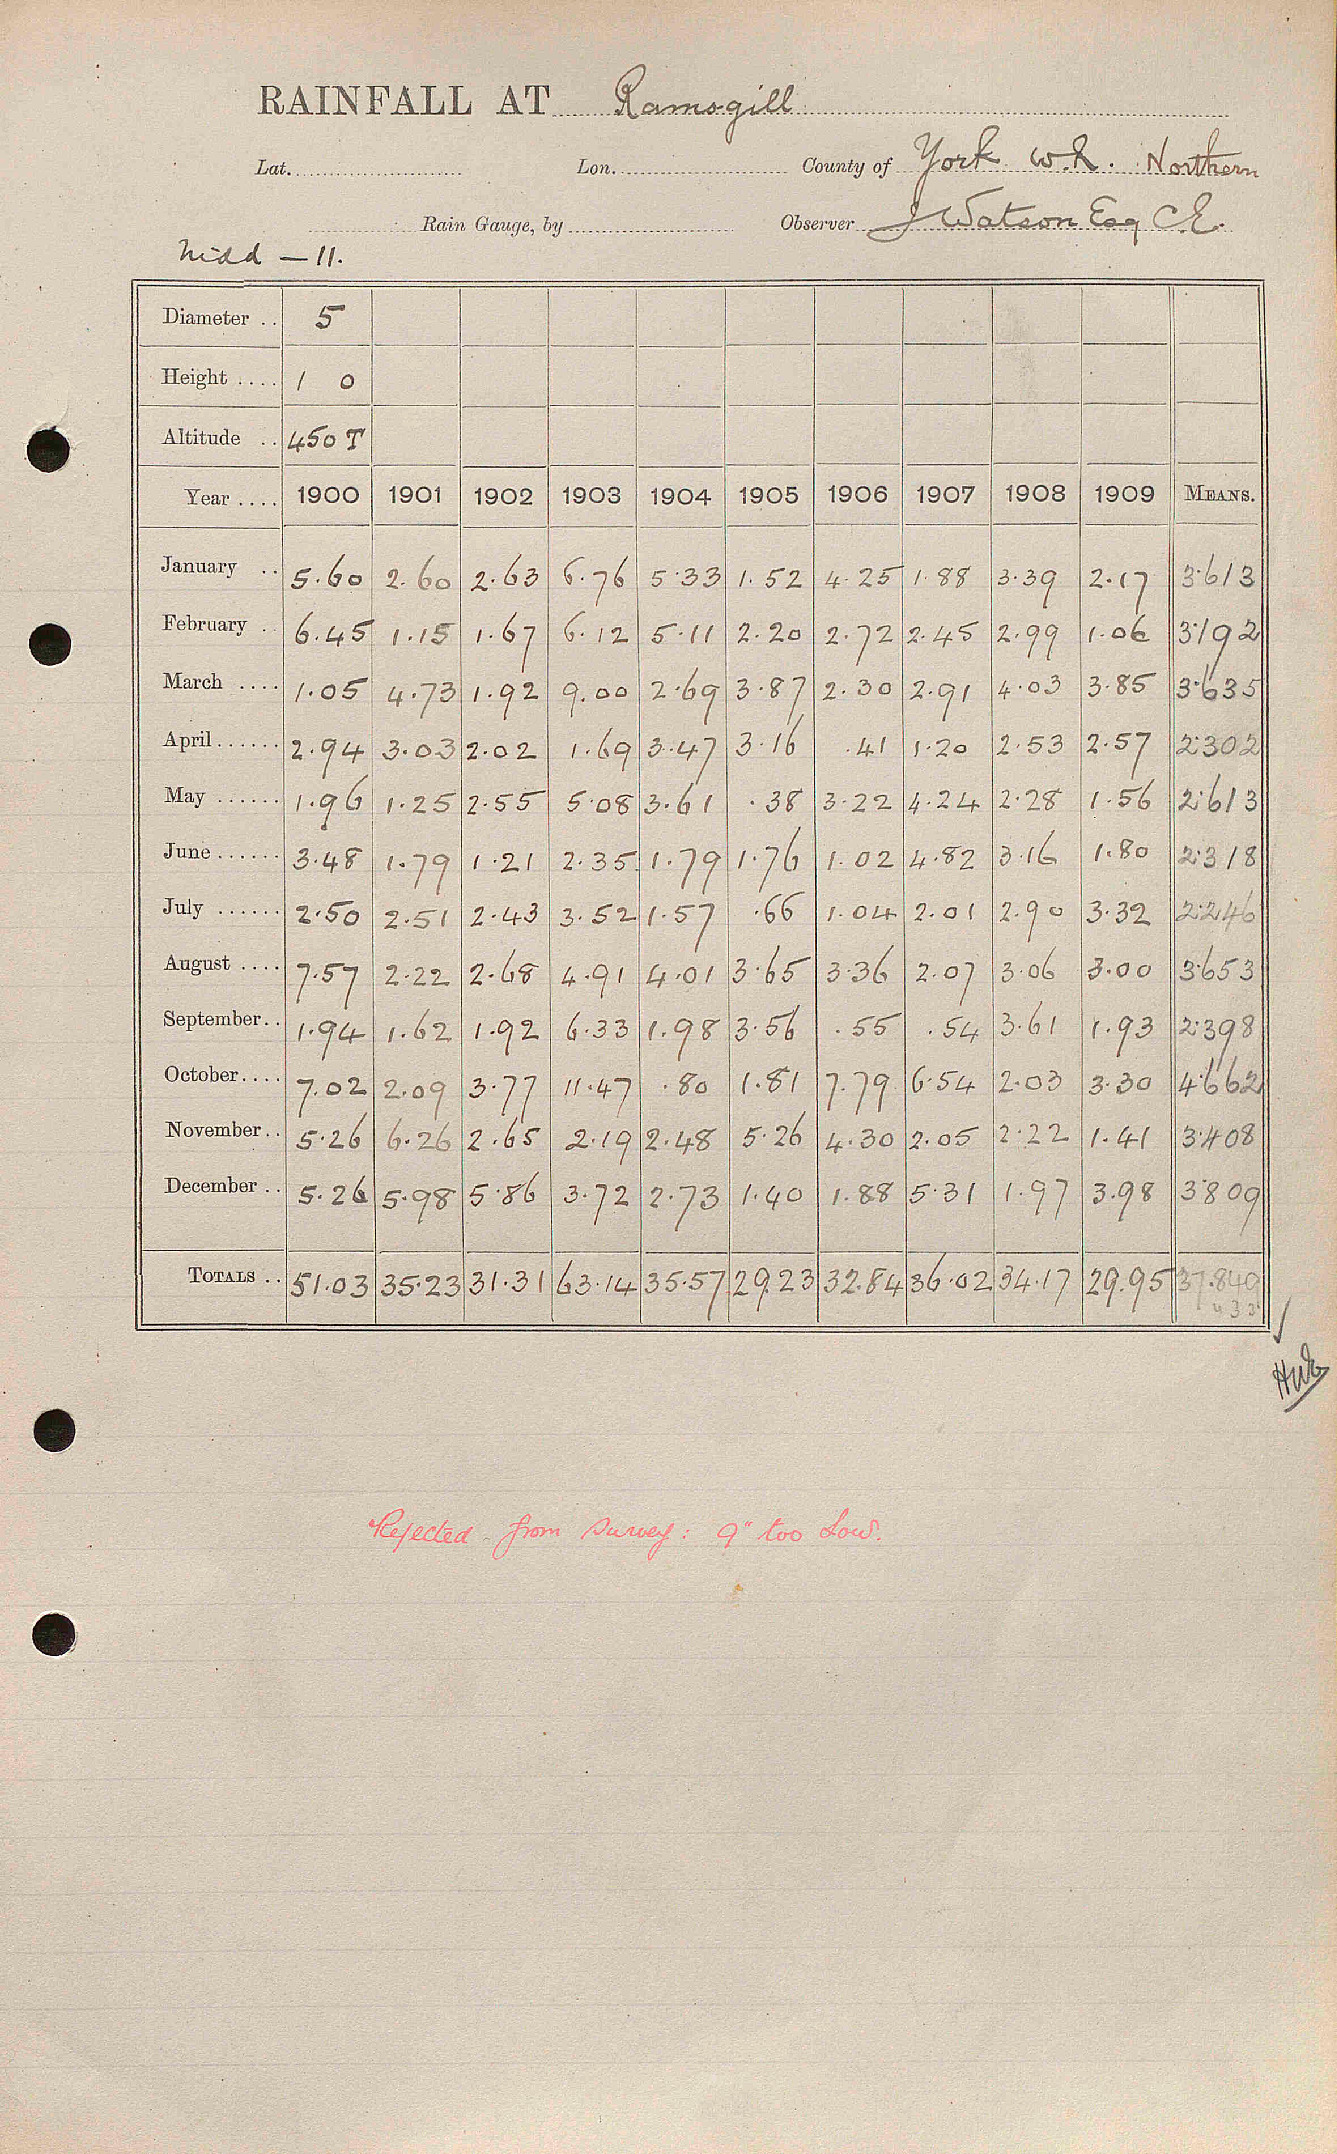 RAINFALL AT Ramsgill
Lat. Lon. County of York W.R. Northern
Rain Gauge, by Observer J Watson Esq C.E.
Nidd — 11.
Diameter .. 5
Height .... 1 0
Altitude .. 450 T
Year .... 1900 1901 1902 1903 1904 1905 1906 1907 1908 1909 MEANS.
January .. 5.60 2.60 2.63 6.76 5.33 1.52 4.25 1.88 3.39 2.17 3.613
February .. 6.45 1.15 1.67 6.12 5.11 2.20 2.72 2.45 2.99 1.06 3.192
March .... 1.05 4.73 1.92 9.00 2.69 3.87 2.30 2.91 4.03 3.85 3.635
April ...... 2.94 3.03 2.02 1.69 3.47 3.16 .41 1.20 2.53 2.57 2.302
May ...... 1.96 1.25 2.55 5.08 3.61 .38 3.22 4.24 2.28 1.56 2.613
June ...... 3.48 1.79 1.21 2.35 1.79 1.76 1.02 4.82 3.16 1.80 2.318
July ...... 2.50 2.51 2.43 3.52 1.57 .66 1.04 2.01 2.90 3.32 2.246
August .... 7.57 2.22 2.68 4.91 4.01 3.65 3.36 2.07 3.06 3.00 3.653
September .. 1.94 1.62 1.92 6.33 1.98 3.56 .55 .54 3.61 1.93 2.398
October .... 7.02 2.09 3.77 11.47 .80 1.81 7.79 6.54 2.03 3.30 4.662
November .. 5.26 6.26 2.65 2.19 2.48 5.26 4.30 2.05 2.22 1.41 3.408
December .. 5.26 5.98 5.86 3.72 2.73 1.40 1.88 5.31 1.97 3.98 3.809
TOTALS .. 51.03 35.23 31.31 63.14 35.57 29.23 32.84 36.02 34.17 29.95 37.849
Rejected from survey: 9" too low.